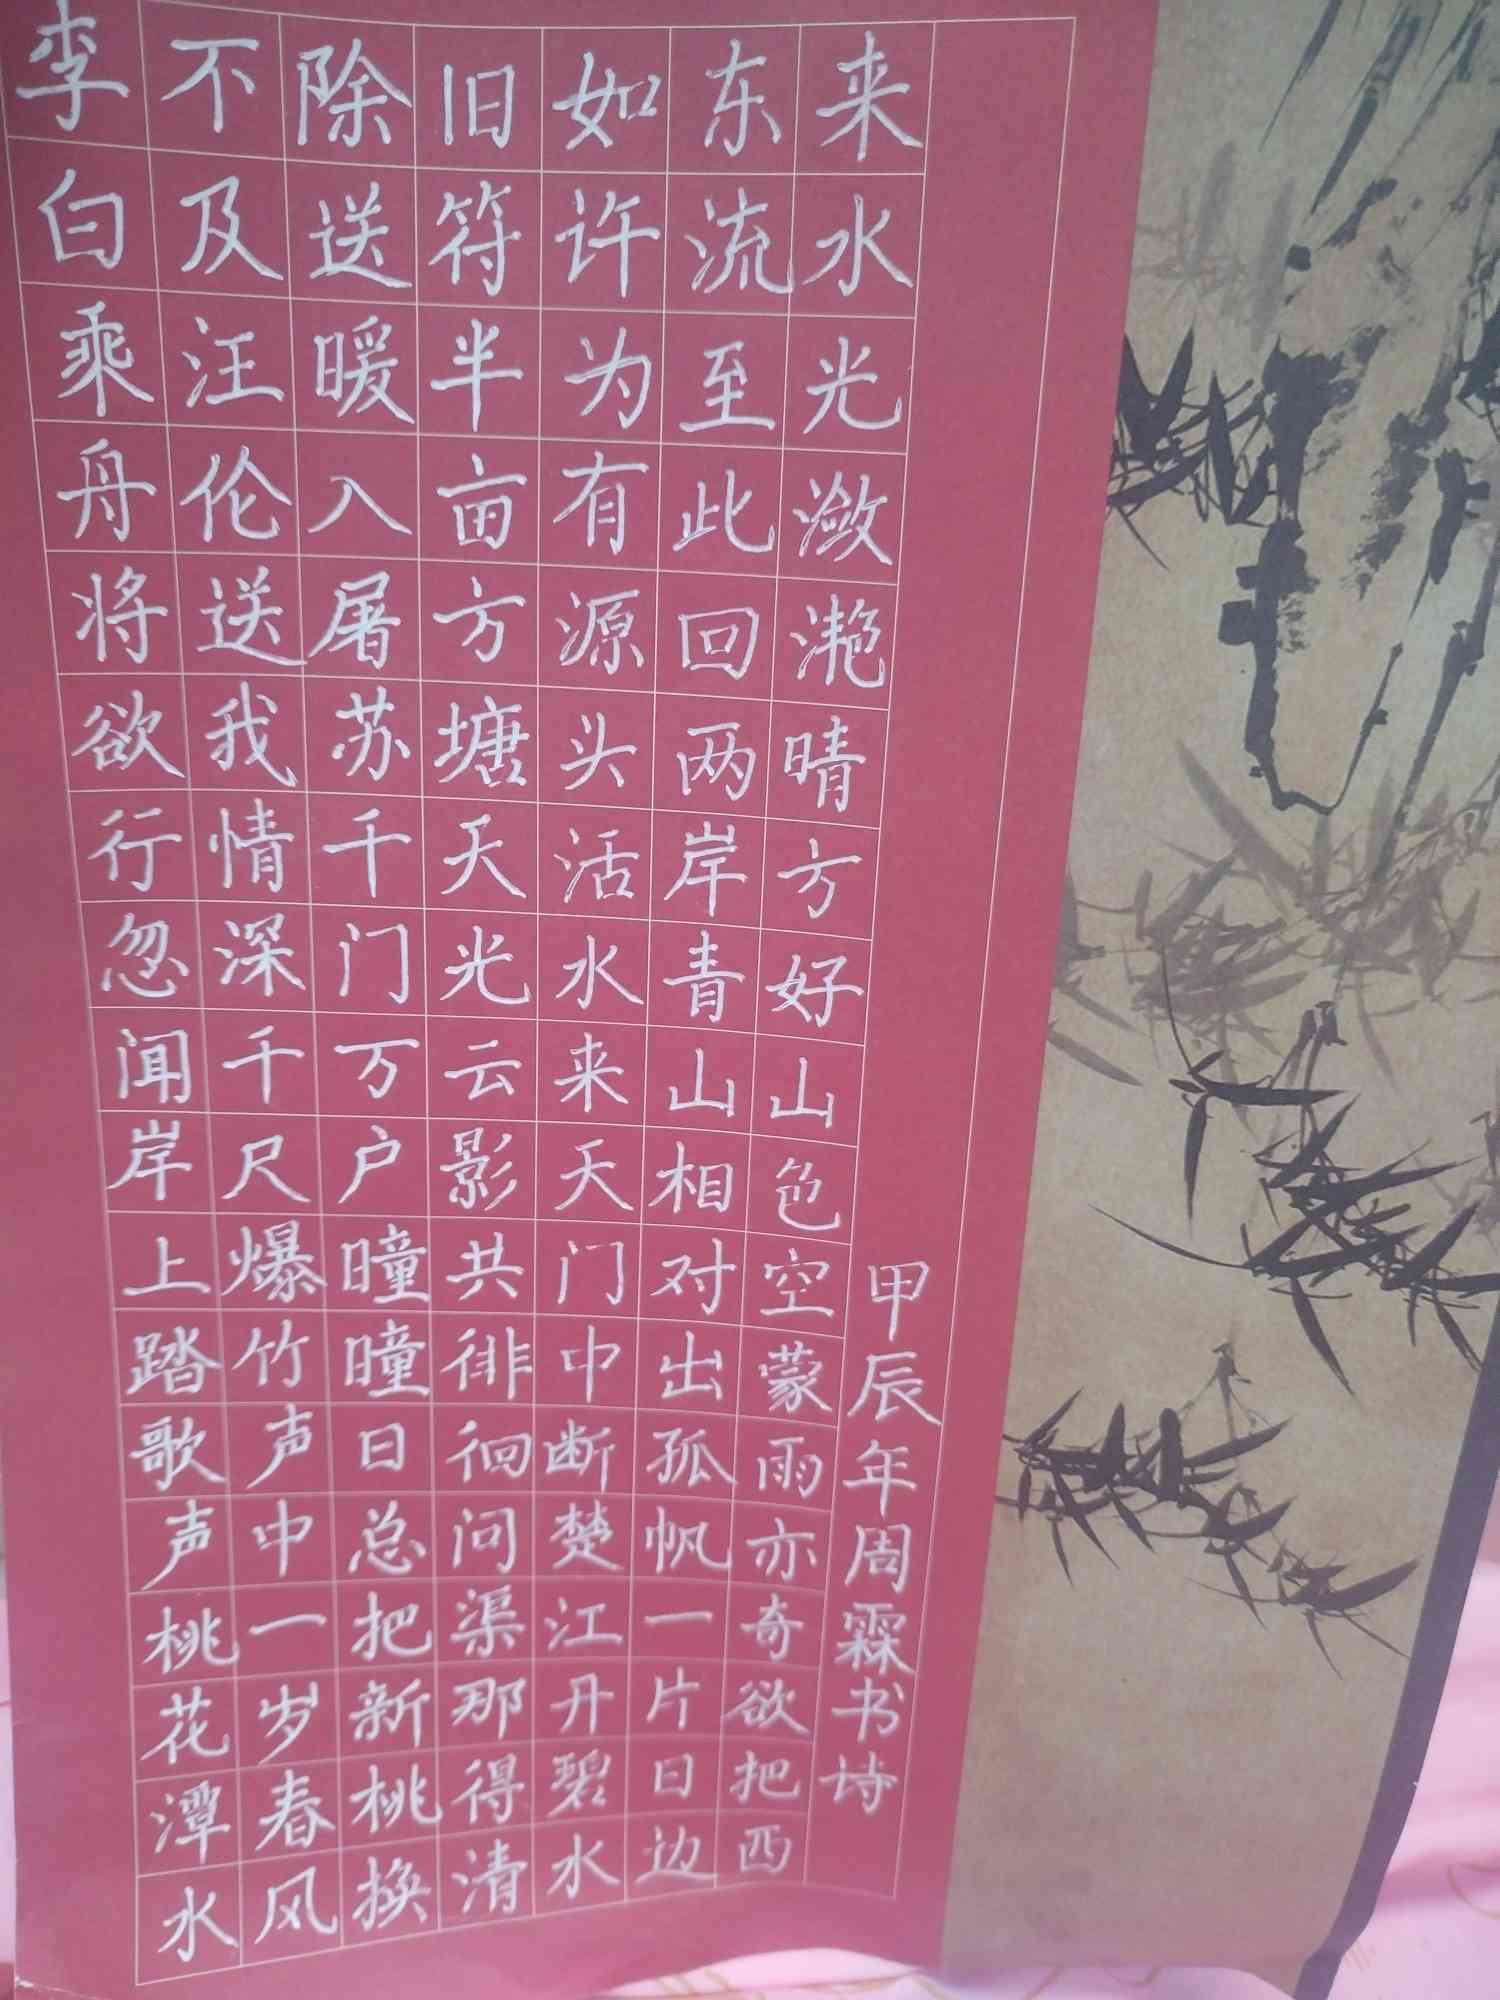 李白乘舟将欲行忽闻岸上踏歌声桃花潭水
不及汪伦送我情深千尺爆竹声中一岁春风
除送暖入屠苏千门万户曈曈日总把新桃换
旧符半亩方塘天光云影共徘徊问渠那得清
如许为有源头活水来天门中断楚江开碧水
东流至此回两岸青山相对出孤帆一片日边
来水光潋滟晴方好山色空蒙雨亦奇欲把西
甲辰年周霖书诗